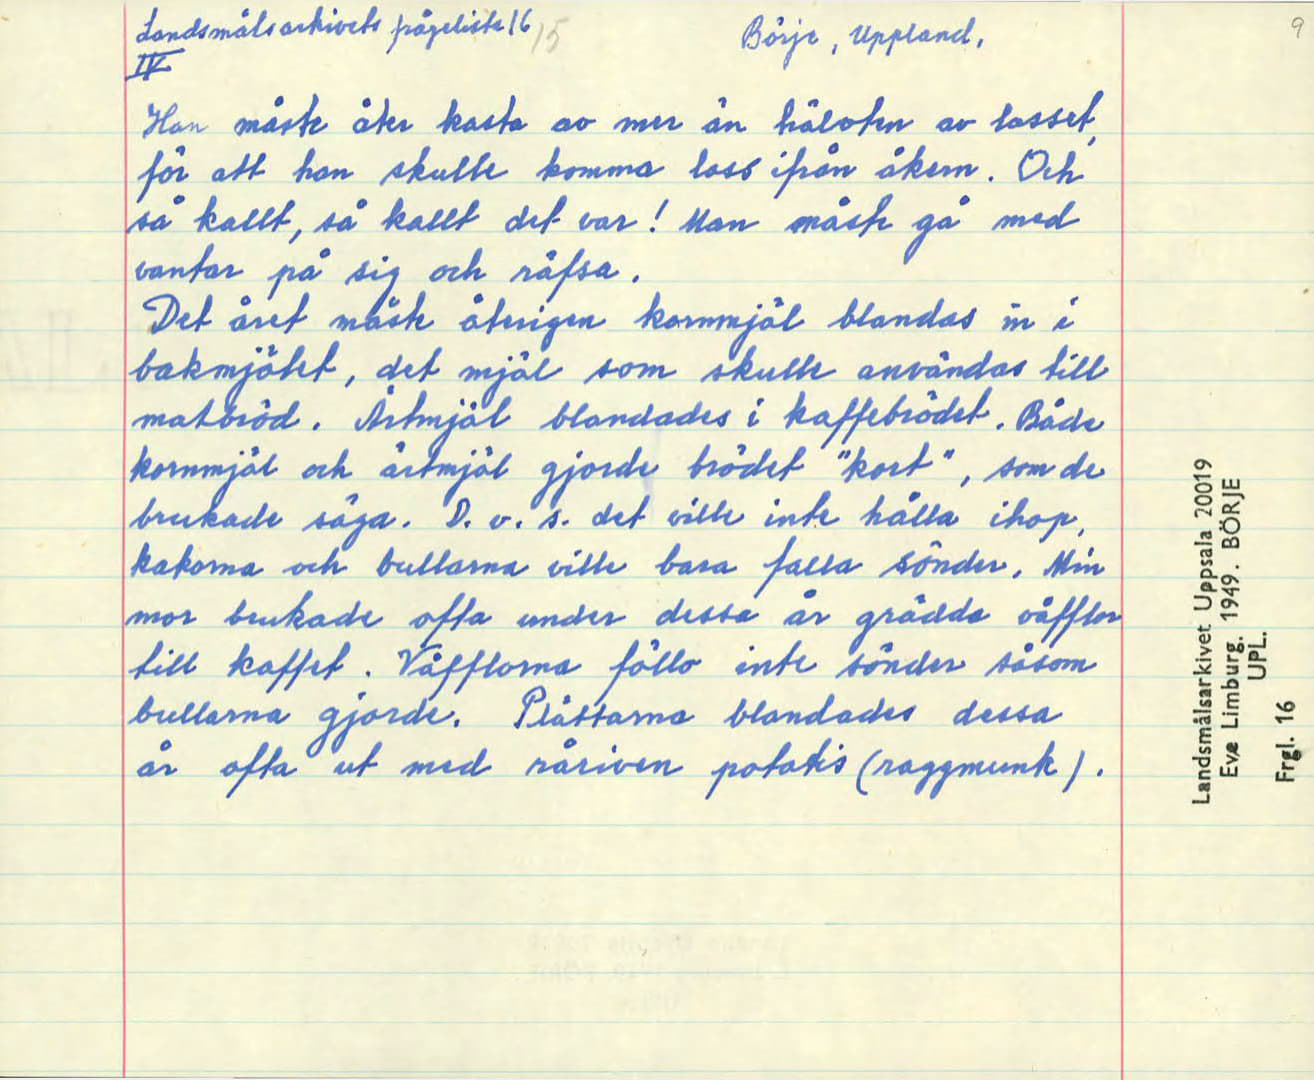 Landsmålsarkivets frågelista 16 15 Börje, Uppland. 9
IV
Han måste åter kasta av mer än hälvten av lasset,
för att han skulle komma loss ifrån åkern. Och
så kallt, så kallt det var! Man måste gå med
vantar på sig och räfsa.
Det året måste återigen kornmjöl blandas in i
bakmjölet, det mjöl som skulle användas till
matbröd. Ärtmjöl blandades i kaffebrödet. Både
kornmjöl och ärtmjöl gjorde brödet "kort", som de
brukade säga. D. v. s. det ville inte hålla ihop,
kakorna och bullarna ville bara falla sönder. Min
mor brukade ofta under dessa år grädda våfflor
till kaffet. Våfflorna föllo inte sönder såsom
bullarna gjorde. Plättarna blandades dessa
år ofta ut med råriven potatis (raggmunk).
Landsmålsarkivet Uppsala 20019
Eva Limburg. 1949. BÖRJE
UPL.
Frgl. 16